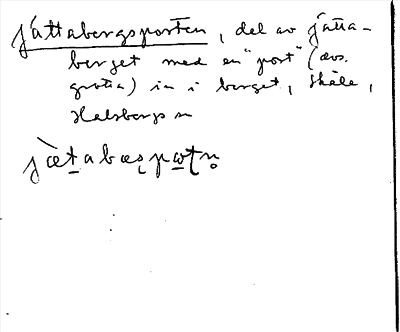 jättabergsporten, del av jätta-
berget med en "port" (dvs.
grotta) in i berget, Skåle,
Halsbergs sn
j æ̀ t a b æ ș p ω ț ṇ